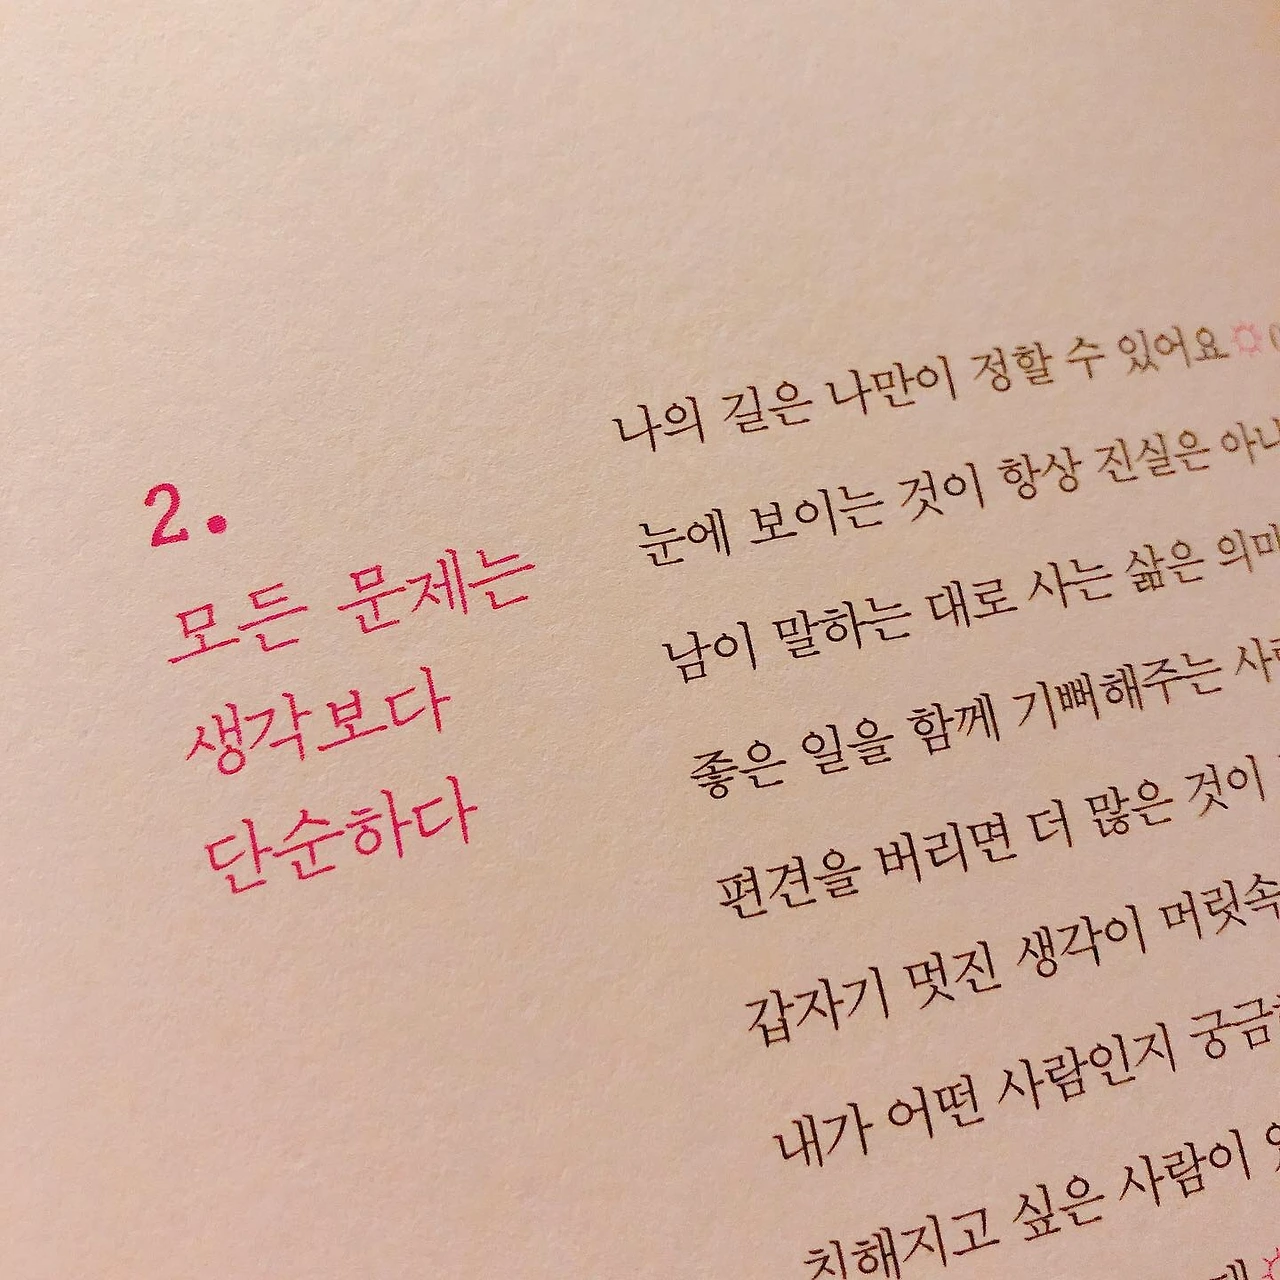 2.
모든 문제는
생각보다
단순하다
나의 길은 나만이 정할 수 있어요
눈에 보이는 것이 항상 진실은
남이 말하는 대로 사는 삶은
좋은 일을 함께 기뻐해주는
편견을 버리면 더 많은 것이
갑자기 멋진 생각이 머릿속
내가 어떤 사람인지
친해지고 싶은 사람이